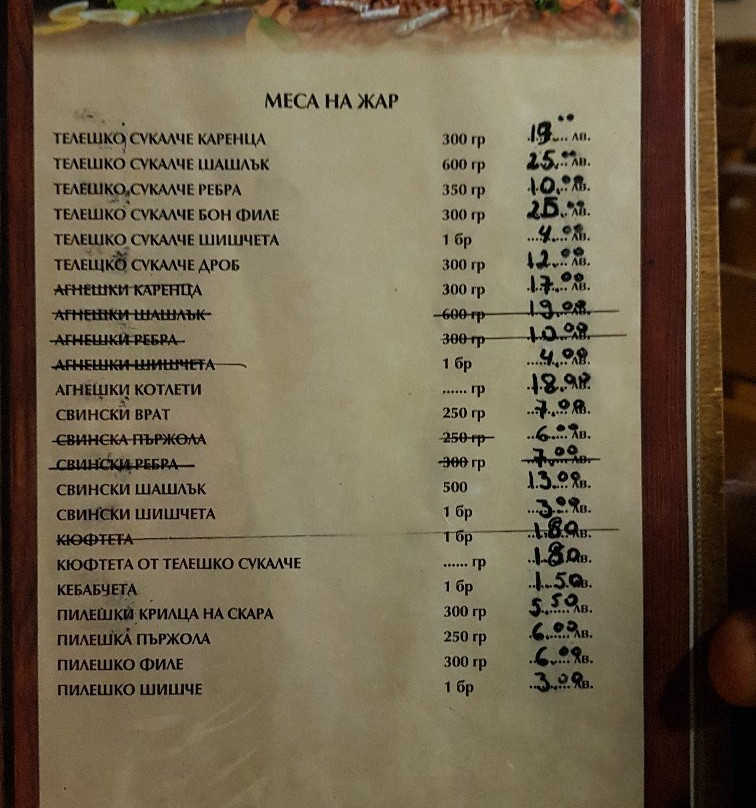 МЕСА НА ЖАР
ТЕЛЕШКО СУКАЛЧЕ КАРЕНЦА 300 гр 19.00 лв.
ТЕЛЕШКО СУКАЛЧЕ ШАШЛЪК 600 гр 25.00 лв.
ТЕЛЕШКО СУКАЛЧЕ РЕБРА 350 гр 10.00 лв.
ТЕЛЕШКО СУКАЛЧЕ БОН ФИЛЕ 300 гр 25.00 лв.
ТЕЛЕШКО СУКАЛЧЕ ШИШЧЕТА 1 бр 4.00 лв.
ТЕЛЕШКО СУКАЛЧЕ ДРОБ 300 гр 12.00 лв.
АГНЕШКИ КАРЕНЦА 300 гр 17.00 лв.
АГНЕШКИ ШАШЛЪК 600 гр 19.00 лв.
АГНЕШКИ РЕБРА 300 гр 10.00 лв.
АГНЕШКИ ШИШЧЕТА 1 бр 4.00 лв.
АГНЕШКИ КОТЛЕТИ ...... гр лв.
СВИНСКИ ВРАТ 250 гр 7.00 лв.
СВИНСКА ПЪРЖОЛА 250 гр 6.00 лв.
СВИНСКИ РЕБРА 300 гр 7.00 лв.
СВИНСКИ ШАШЛЪК 500 13.00 лв.
СВИНСКИ ШИШЧЕТА 1 бр 3.00 лв.
КЮФТЕТА 1 бр 1.80 лв.
КЮФТЕТА ОТ ТЕЛЕШКО СУКАЛЧЕ ...... гр 1.80 лв.
КЕБАБЧЕТА 1 бр 1.50 лв.
ПИЛЕШКИ КРИЛЦА НА СКАРА 300 гр 5.50 лв.
ПИЛЕШКА ПЪРЖОЛА 250 гр 6.00 лв.
ПИЛЕШКО ФИЛЕ 300 гр 6.00 лв.
ПИЛЕШКО ШИШЧЕ 1 бр 3.00 лв.